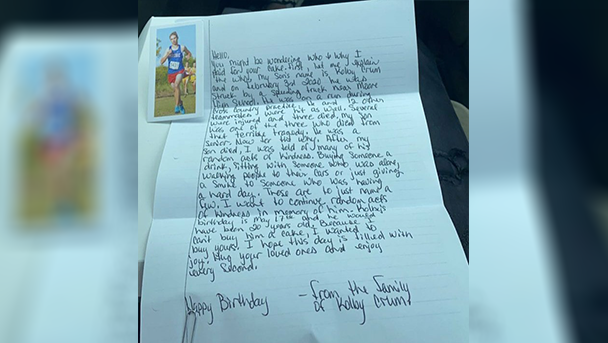 Hello,
You might be wondering who & why I
paid for your cake. First let me explain
the who. My son's name is Kolby Crum
and on February 3rd 2020 he was
struck by a speeding truck near Moore
High School. He was on a run during
cross country practice. He and 12 other
teammates were hit as well. Several
were injured and three died, my son
was one of the three who died from
that terrible tragedy. He was a
senior. Now for the why. After my
son died, I was told of many of his
random acts of kindness. Buying someone a
drink, sitting with someone who was alone,
walking people to their cars or just giving
a smile to someone who was having
a hard day. These are to just name a
few. I want to continue random acts
of kindness in memory of him. Kolby's
birthday is May 1st and he would
have been 20 years old. Because I
can't buy him a cake, I wanted to
buy yours. I hope this day is filled with
joy. Hug your loved ones and enjoy
every second.
Happy Birthday - From the family
of Kolby Crum